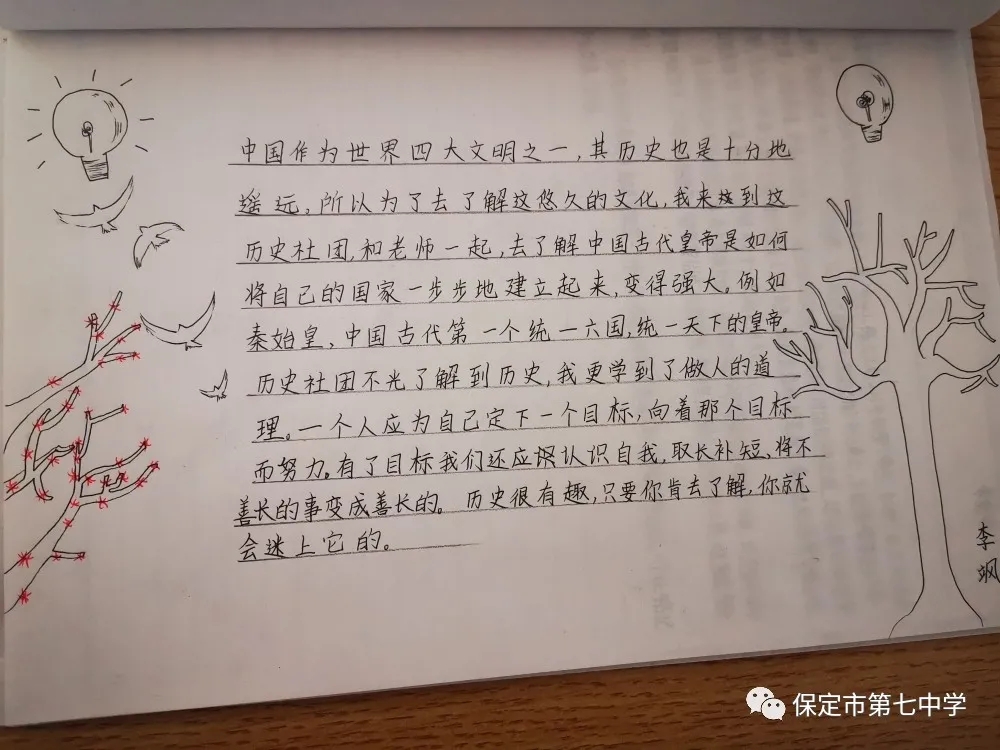 中国作为世界四大文明之一,其历史也是十分地
遥远,所以为了去了解这悠久的文化,我来到这
历史社团,和老师一起,去了解中国古代皇帝是如何
将自己的国家一步步地建立起来,变得强大。例如
秦始皇、中国古代第一个统一六国,统一天下的皇帝。
历史社团不光了解到历史,我更学到了做人的道
理。一个人应为自己定下一个目标,向着那个目标
而努力。有了目标我们还应认识自我,取长补短、将不
善长的事变成善长的。历史很有趣,只要你肯去了解,你就
会迷上它的。
李
飒
保定市第七中学